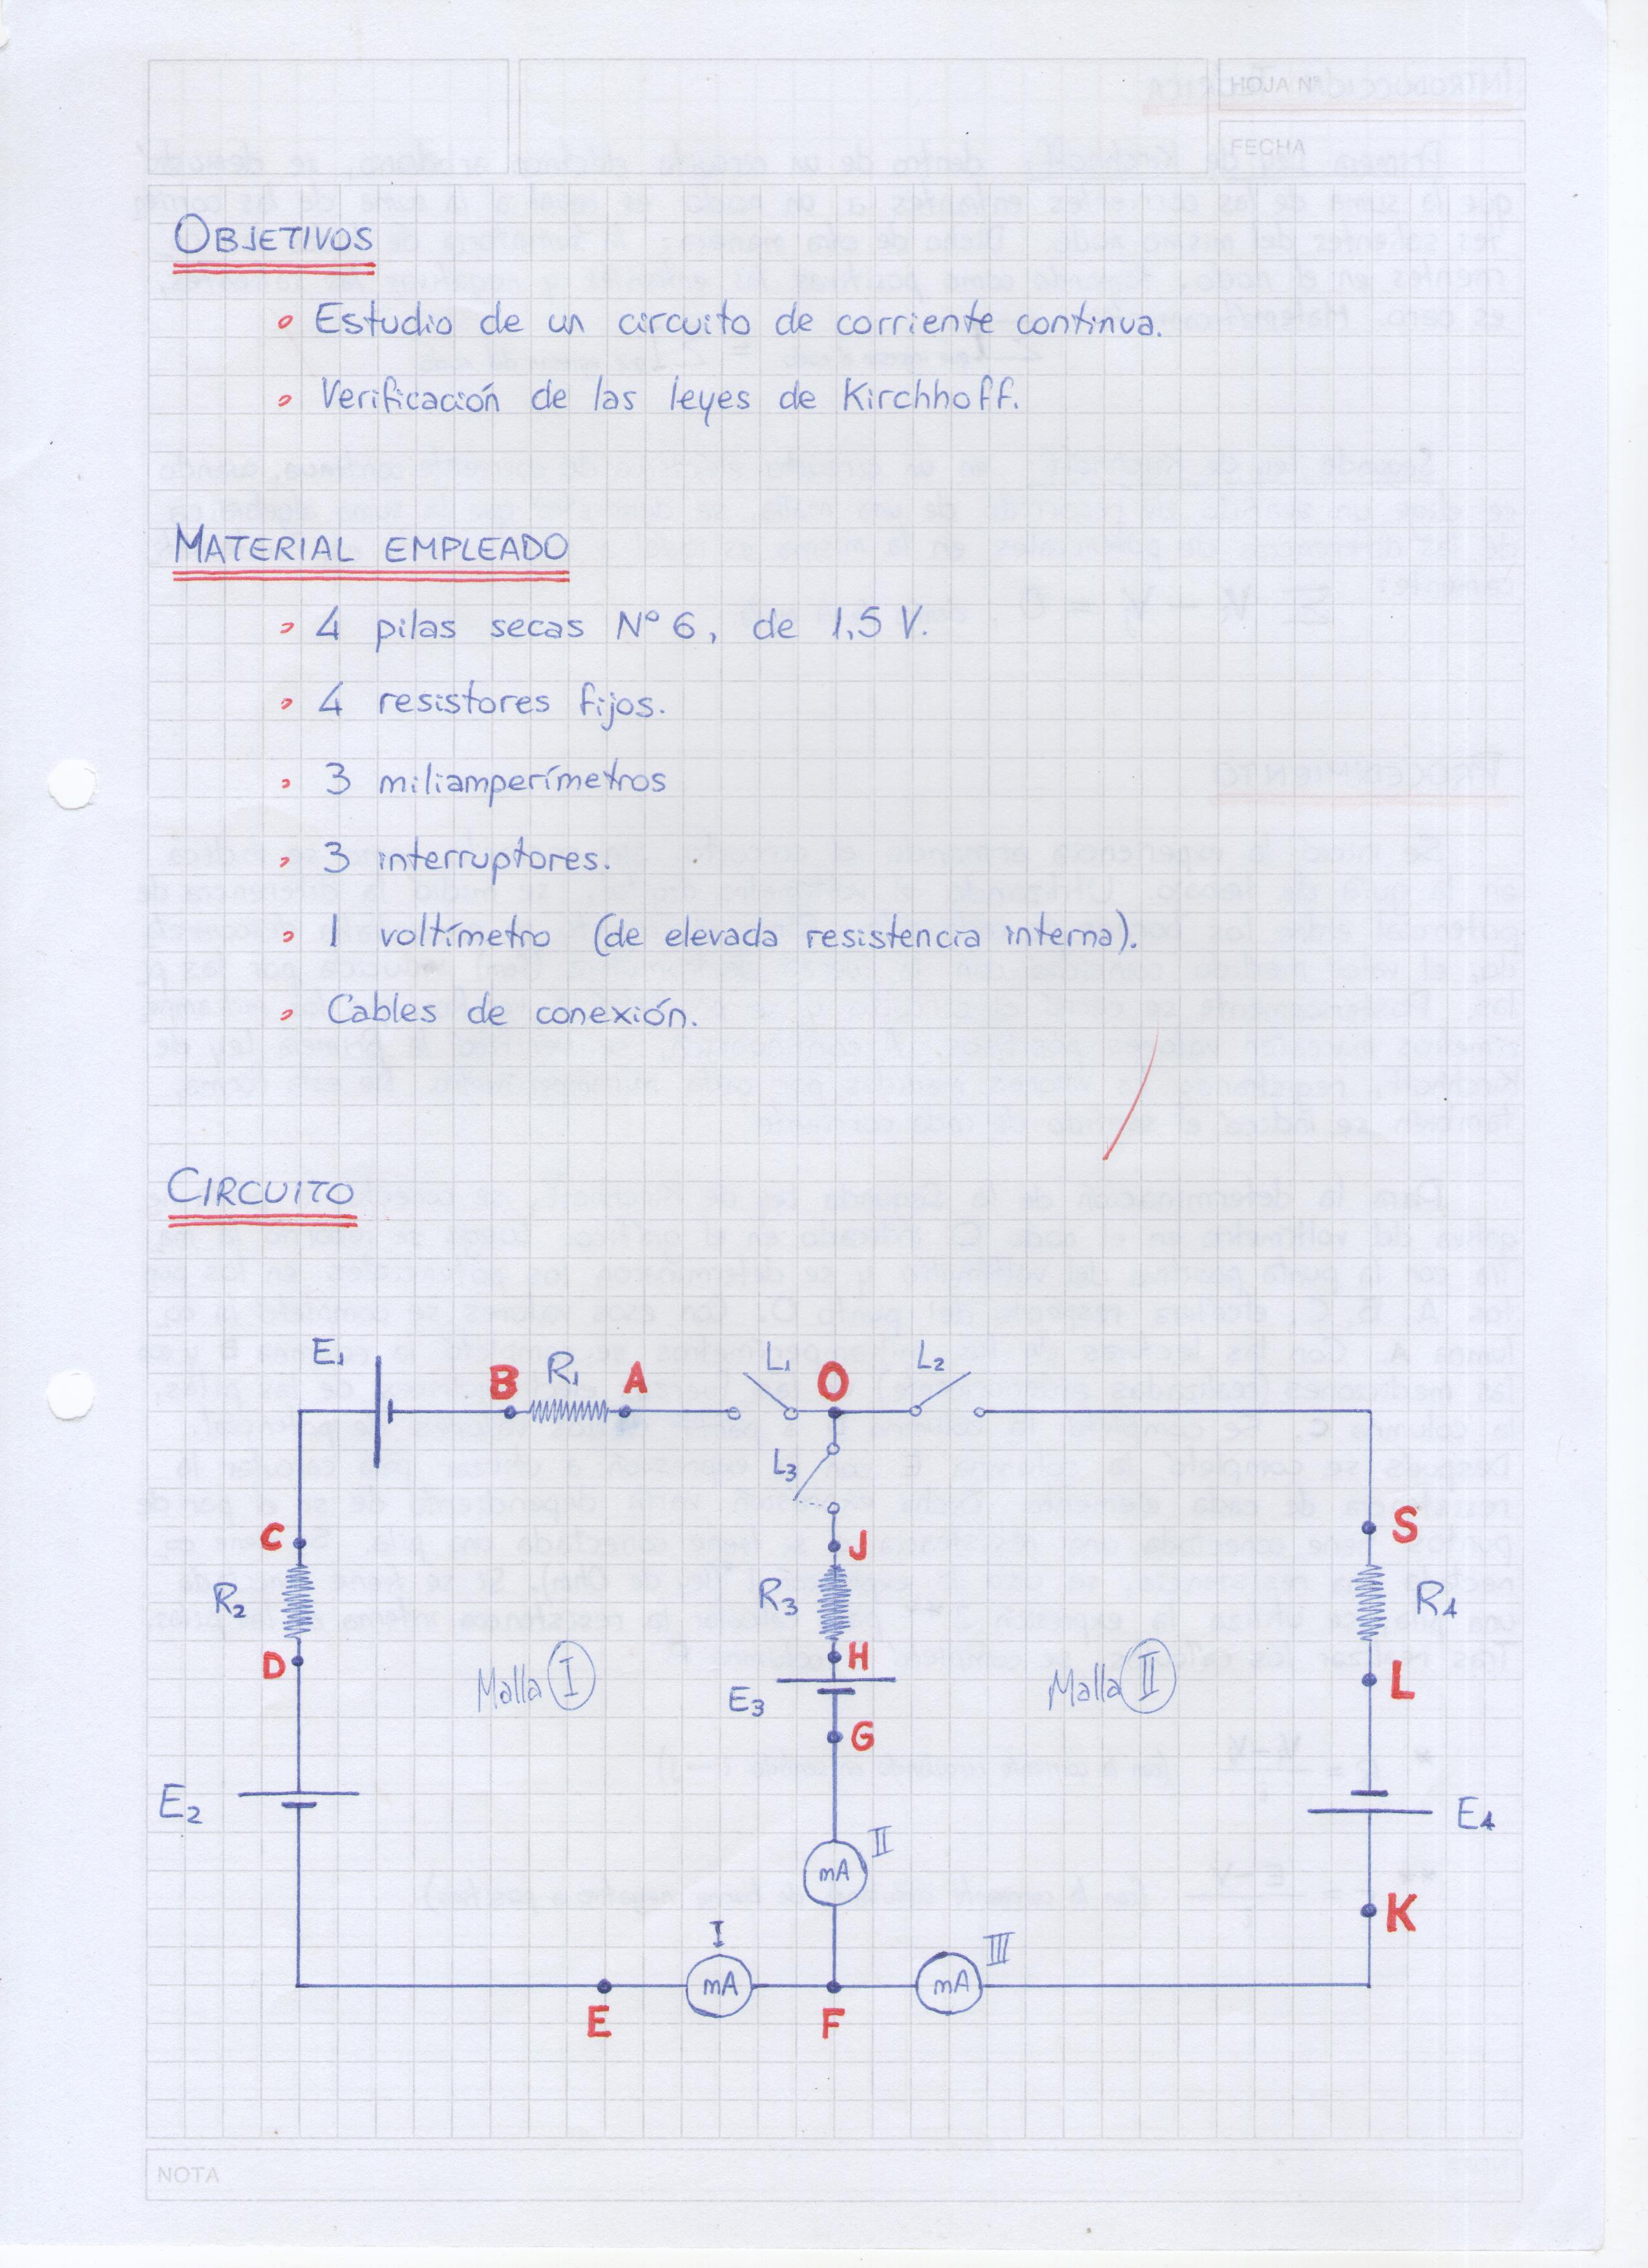 HOJA Nº
FECHA
OBJETIVOS
Estudio de un circuito de corriente continua.
Verificación de las leyes de Kirchhoff.
MATERIAL EMPLEADO
4 pilas secas Nº 6, de 1,5 V.
4 resistores fijos.
3 miliamperímetros
3 interruptores.
1 voltímetro (de elevada resistencia interna).
Cables de conexión.
CIRCUITO
E1 B R1 A L1 O L2
L3
C J S
R2 R3 R4
D H L
Malla I E3 Malla II
G
E2 E4
mA II
K
I mA mA III
E F
NOTA